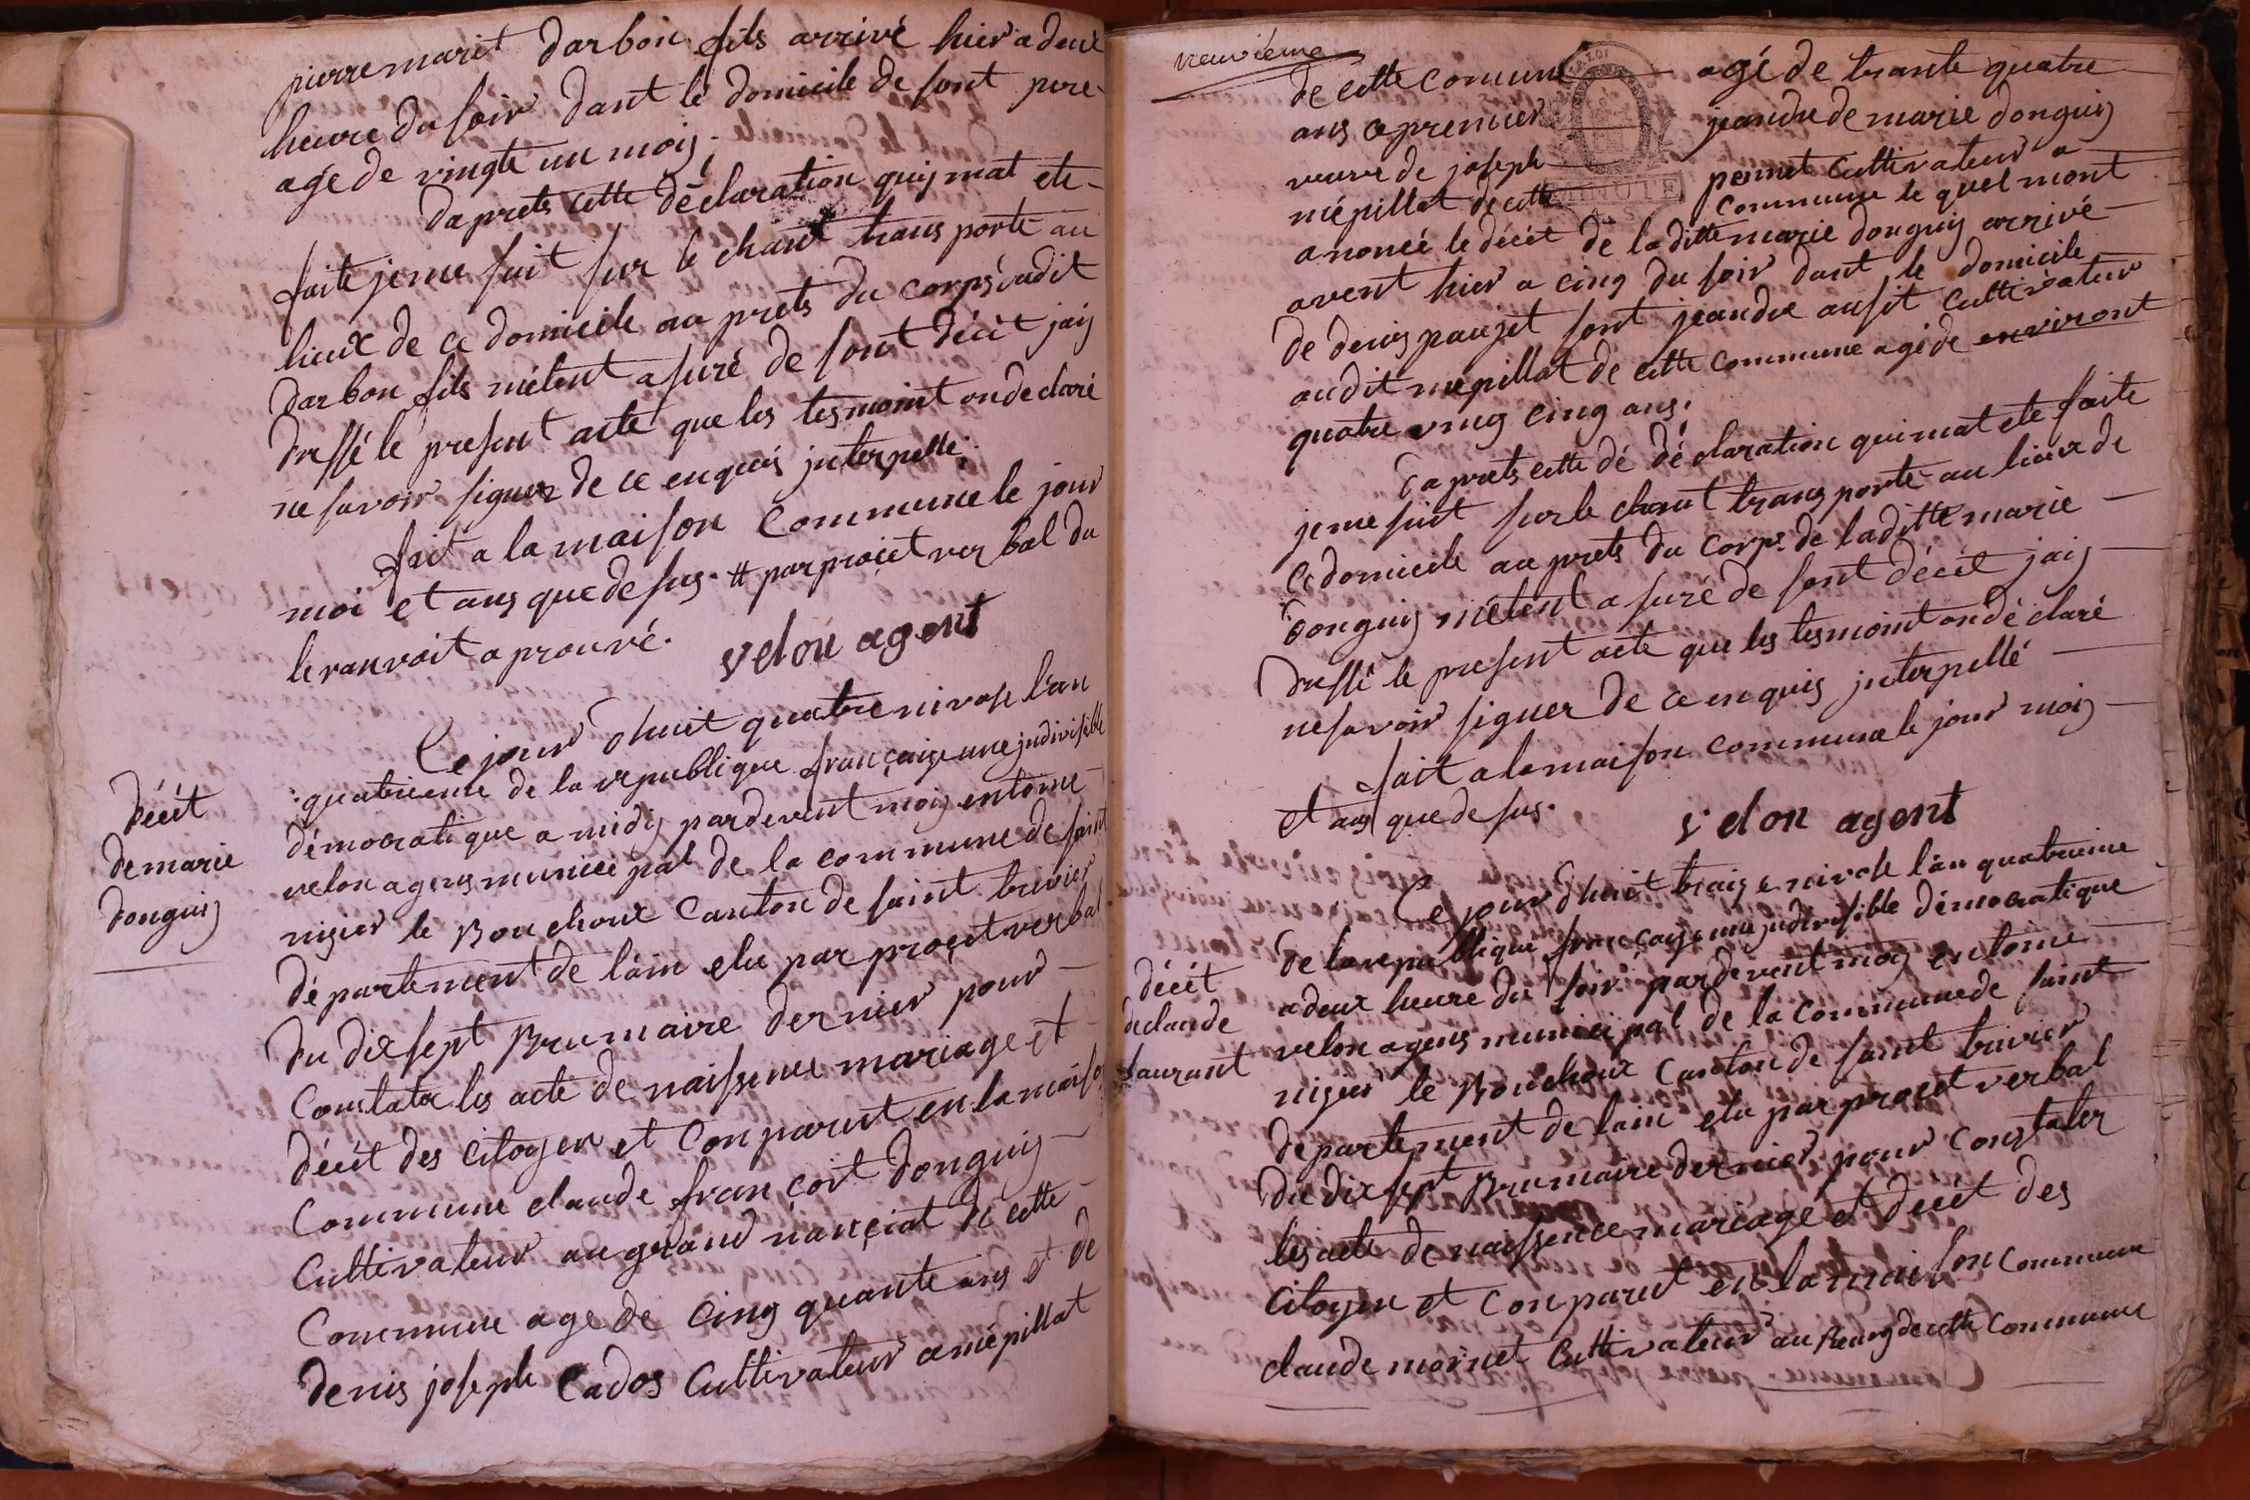 pierre marit darbon fils arrivé hier a deux
heure du soir dant le domicile de sont pere
agé de vingte un mois.
daprets cette déclaration quij mat ete
faite je me suit sur le chant trans porte au
lieux de ce domicile au prets du corps dudit
darbon fils métent asuré de sont décit jaij
dressé le present acte que les tesmoint on declaré
ne savoir signer de ce enquis jnterpellé.
fait a la maison commune le jour
moi et ans que de sus. # par proiet ver bal du
le ranvoit a prouvé.
velon agent
décét
de marie
donguij
Ce jour dhuit quatre nivose lan
quatrieme de la republique françaize une jndivisible
démocratique a midij pardevent moij entome
velon agens municipal de la commune de saint
nizier le Bouchoux canton de saint trivier
département de láin elu par proçét verbal
du dix sept Brumaire dernier pour
Constater les acte de naissence mariage et
décét des citoyen et Conparut en la maison
Commune claude françoit donguij
Cultivateur au grand nançiat de cette
Commune age de cinq quante ans et de
denis joseph Cados Cultivateur a mépillat
neuvième
de cette comune agé de trante quatre
ans a premier jeandre de marie donguij
veuve de joseph pennet cultivateur a
mépillat de cette commune le quel mont
anoncé le décét de laditte marie donguij arrivé
avent hier a cinq du soir dant le domicile
de denis paujet sont jeandre ausit cultivateur
audit mépillat de cette commune agé de environt
quatre vingt cinq ans.
daprets cette dé déclaration qui mat ete faite
je me suit sur le chant trans porte au lieux de
Ce domicile au prets du corps de laditte marie
donguij métent a suré de sont décét jaij
dressé le present acte que les tesmoint on dé claré
ne savoir signer de ce enquis jnterpellé
fait a la maison commune le jour mois
et ans que de sus.
velon agent
décét
de claude
laurant
Ce jour dhuit traize nivose lán quatrieme
de la republique françaize une jndivisible démocratique
a deux heure du soir pardevent moij entome
velon agens municipal de la commune de saint
nizier le Bouchoux canton de saint trivier
departement de lain elu par proçét verbal
du dix sept Brumaire dernier pour constater
les acte de naissence mariage et decét des
citoyen et Conparut en la maison commune
claude moruet Cultivateur au Bourg de cette commune